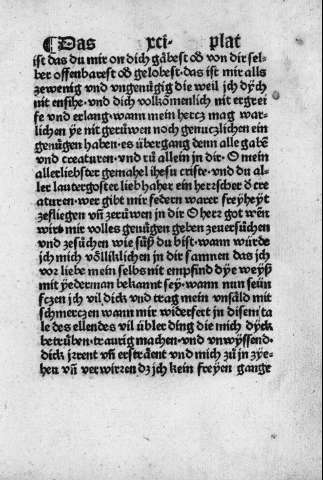 Das xci plat
ist das du mir on dich gäbest oð von dir sel-
ber offenbarest oð gelobest·das ist mir alls
zewenig vnd vngenügig die weil jch dych
nit ensihe·vnd dich volkomenlich nit ergrei
fe vnd erlang·wann mein hercz mag war-
lichen ye nit gerüwen noch genuczlichen ein
genügen haben·es übergang denn alle gabē
vnd creaturen·vnd rů allein in dir·O mein
allerliebster gemahel ihesu criste·vnd du al-
ler lautergoster liebhaber ein herrscher ð cre
aturen·wer gibt mir federn warer freyheyt
zefliegen vñ zerůwen in dir O herr got wēn
wirt mir volles genügen geben zeuersůchen
vnd zesůchen wie süß du bist·wann würde
jch mich völliklichen in dir samnen das jch
vor liebe mein selbs nit empfind dye weyß
mit yederman bekannt sey·wann nun seün
fczen jch vil dick vnd trag mein vnsäld mit
schmerczen wann mir widerfert in disem ta
le des ellendes vil übler ding die mich dyck
betrüben·traurig machen·vnd vnwyssend·
dick jrrent vñ ersträent vnd mich zů in zye-
hen vñ verwirren dz jch kein freyen gange